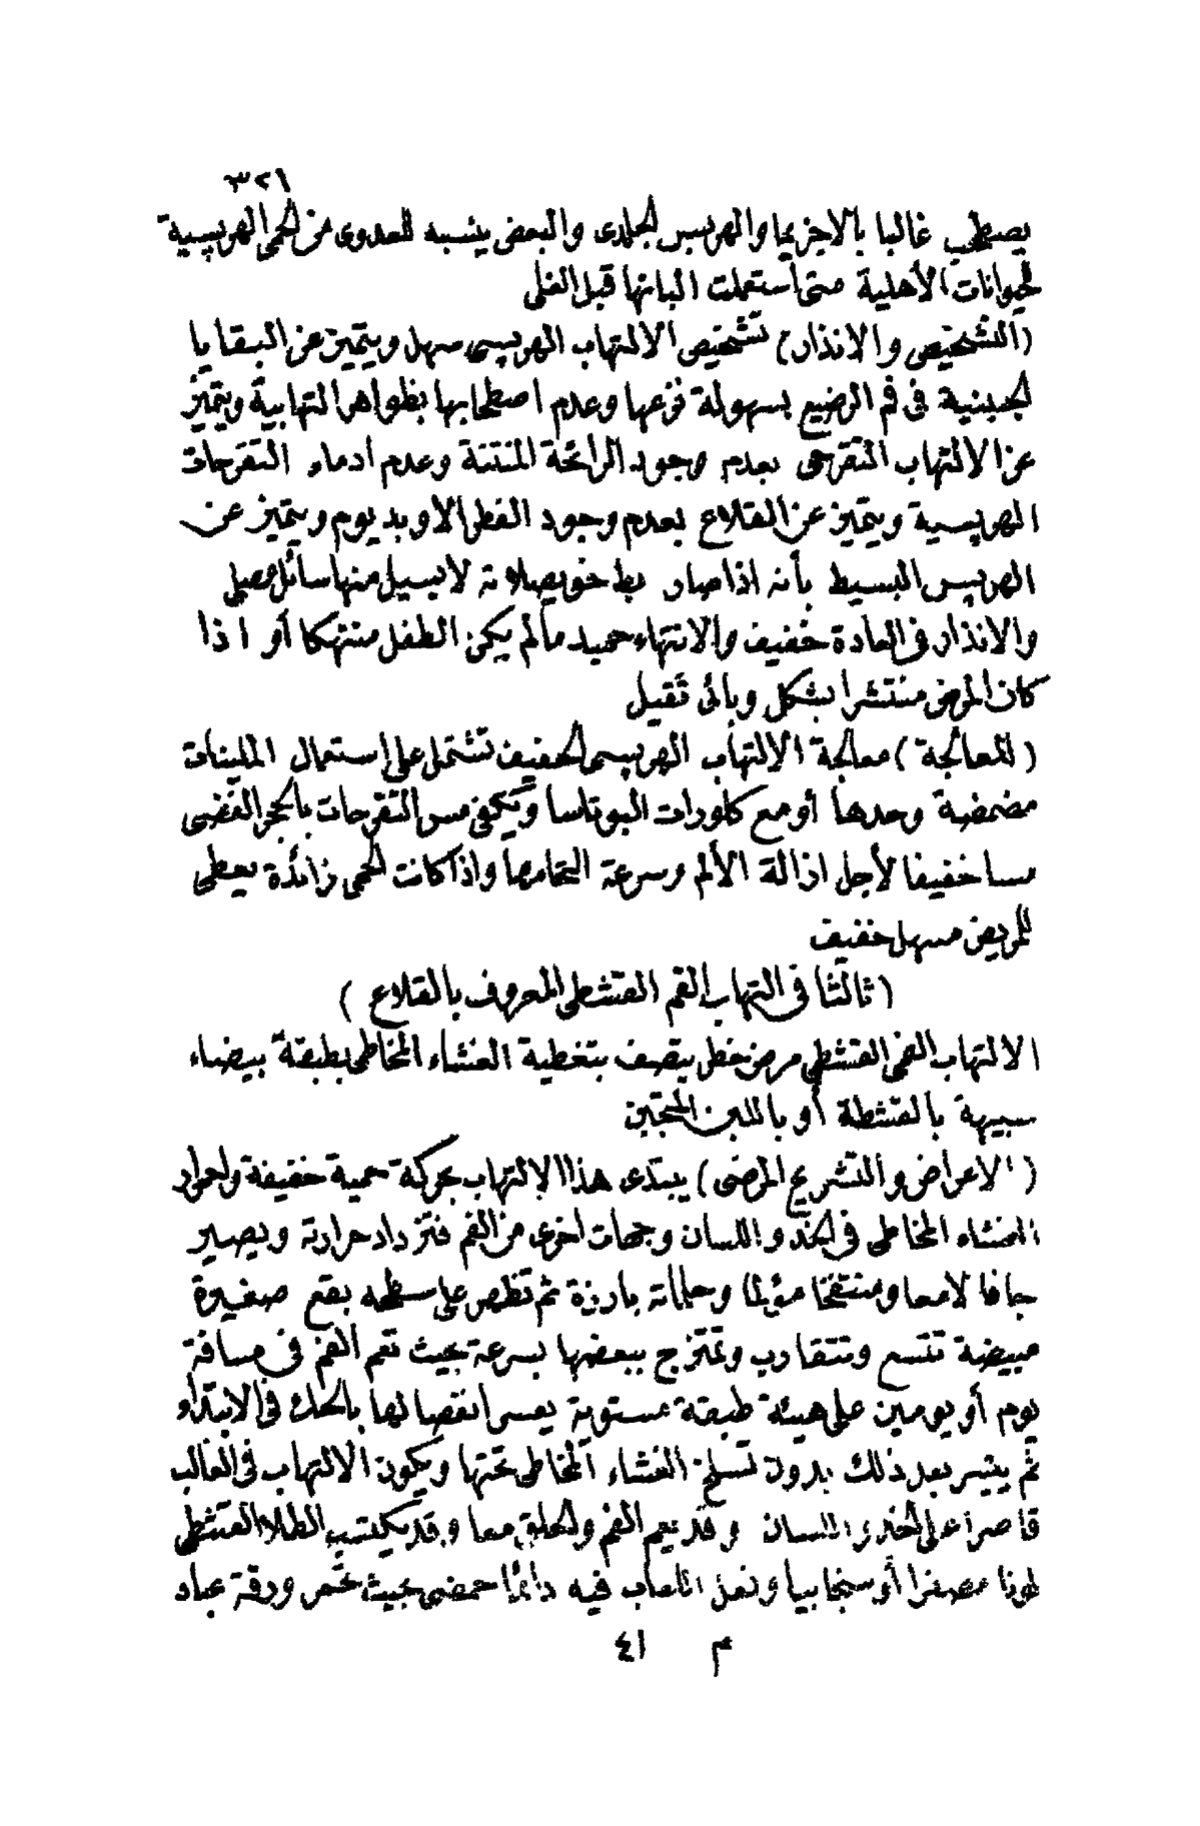 ٣٢١
يصطحب غالبا بالاجزيما والهربس الجلدى والبعض ينسبه للعدوى من الحمى الهربسية
الحيوانات الأهلية متى استعملت البانها قبل الغلى
(التشخيص والانذار) تشخيص الالتهاب الهربسى سهل ويتميز عن البقايا
الجبنية فى فم الرضيع بسهولة نزعها وعدم اصطحابها بظواهر التهابية ويتميز
عن الالتهاب التقرحى بعدم وجود الرائحة المنتنة وعدم ادماء التقرحات
الهربسية ويتميز عن القلاع بعدم وجود الفطر الاويديوم ويتميز عن
الهربس البسيط بأنه اذا صار لا يسيل منها سائل مصلى
والانذار فى العادة خفيف والانتهاء حميد مالم يكن الطفل منتهكا أو اذا
كان المرض منتشرا بشكل وبائى ثقيل
(المعالجة) معالجة الالتهاب الهربسى الخفيف تشتمل على استعمال الملينات
مضمضة وحدها أو مع كلورات البوتاسا ويكفى مس التقرحات بالحجر الفضى
مسا خفيفا لأجل ازالة الألم وسرعة التحامها واذا كانت الحمى زائدة يعطى
للمريض مسهل خفيف
(ثالثا فى التهاب الفم القشطى المعروف بالقلاع)
الالتهاب الفمى القشطى مرض خطر يتصف بتغطية الغشاء المخاطى بطبقة بيضاء
شبيهة بالقشطة أو باللبن المتجبن
(الاعراض والتشريح المرضى) يبتدى هذا الالتهاب بحركة حمية خفيفة واحمرار
الغشاء المخاطى فى الخد واللسان وجهات اخرى من الفم فتزداد حرارته ويصير
جافا لامعا ومنتفخا مؤلما وحلماته بارزة ثم تظهر على سطحه بقع صغيرة
مبيضة تتسع وتتقارب وتمتزج ببعضها بسرعة بحيث تعم الفم فى مسافة
يوم أو يومين على هيئة طبقة مستوية يعسر انفصالها بالحك فى الابتداء
ثم يتيسر بعد ذلك بدون تسلخ الغشاء المخاطى تحتها ويكون الالتهاب فى الغالب
قاصرا على الخد واللسان وقد يعم الفم والحلق معا وقد يكتسب الطلاء القشطى
لونا مصفرا أو سنجابيا وفعل اللعاب فيه دائما حمضى بحيث تحمر ورقة عباد
م ٤١